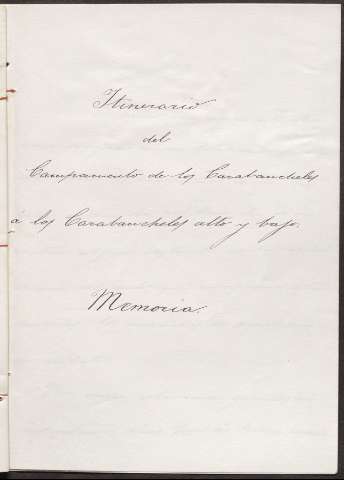 Itinerario
del
Campamento de los Carabancheles
á los Carabancheles alto y bajo.
Memoria.